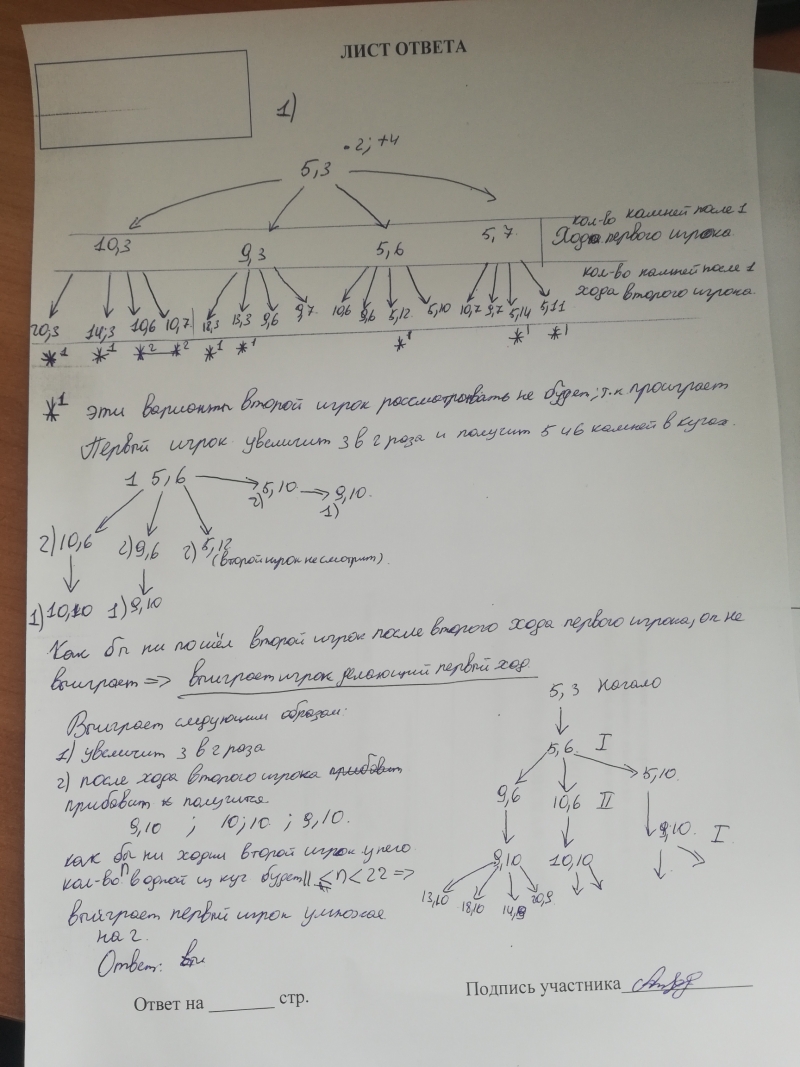 ЛИСТ ОТВЕТА
1)
·2; +4
5,3
10,3 9,3 5,6 5,7
кол-во камней после 1
Хода первого игрока.
кол-во камней после 1
хода второго игрока.
20,3 14;3 10,6 10,7 18,3 13,3 9,6 9,7 10,6 9,6 5,12 5,10 10,7 9,7 5,14 5,11
*1 *1 *2 *2 *1 *1 *1 *1 *1
*1 эти варианты второй игрок рассматривать не будет; т.к. проиграет
Первый игрок увеличит 3 в 2 раза и получит 5 и 6 камней в кучах.
1 5,6 2) 5,10 9,10.
1)
2) 10,6 2) 9,6 2) 5,12 (второй игрок не смотрит).
1) 10,10 1) 9,10
Как бы ни пошёл второй игрок после второго хода первого игрока, он не
выиграет => выиграет игрок делающий первый ход.
Выиграет следующим образом:
1) увеличит 3 в 2 раза
2) после хода второго игрока прибавит
прибавит к получится
9,10 ; 10;10 ; 9,10.
как бы ни ходил второй игрок у него
кол-во n в одной из куч будет 11 ≤ n < 22 =>
выйграет первый игрок умножая
на 2.
Ответ: вы
5,3 Начало
5,6. I
9,6 10,6 II 5,10
9,10 10,10 9,10. I
13,10 18,10 14,9 20,9
Ответ на ______ стр.
Подпись участника